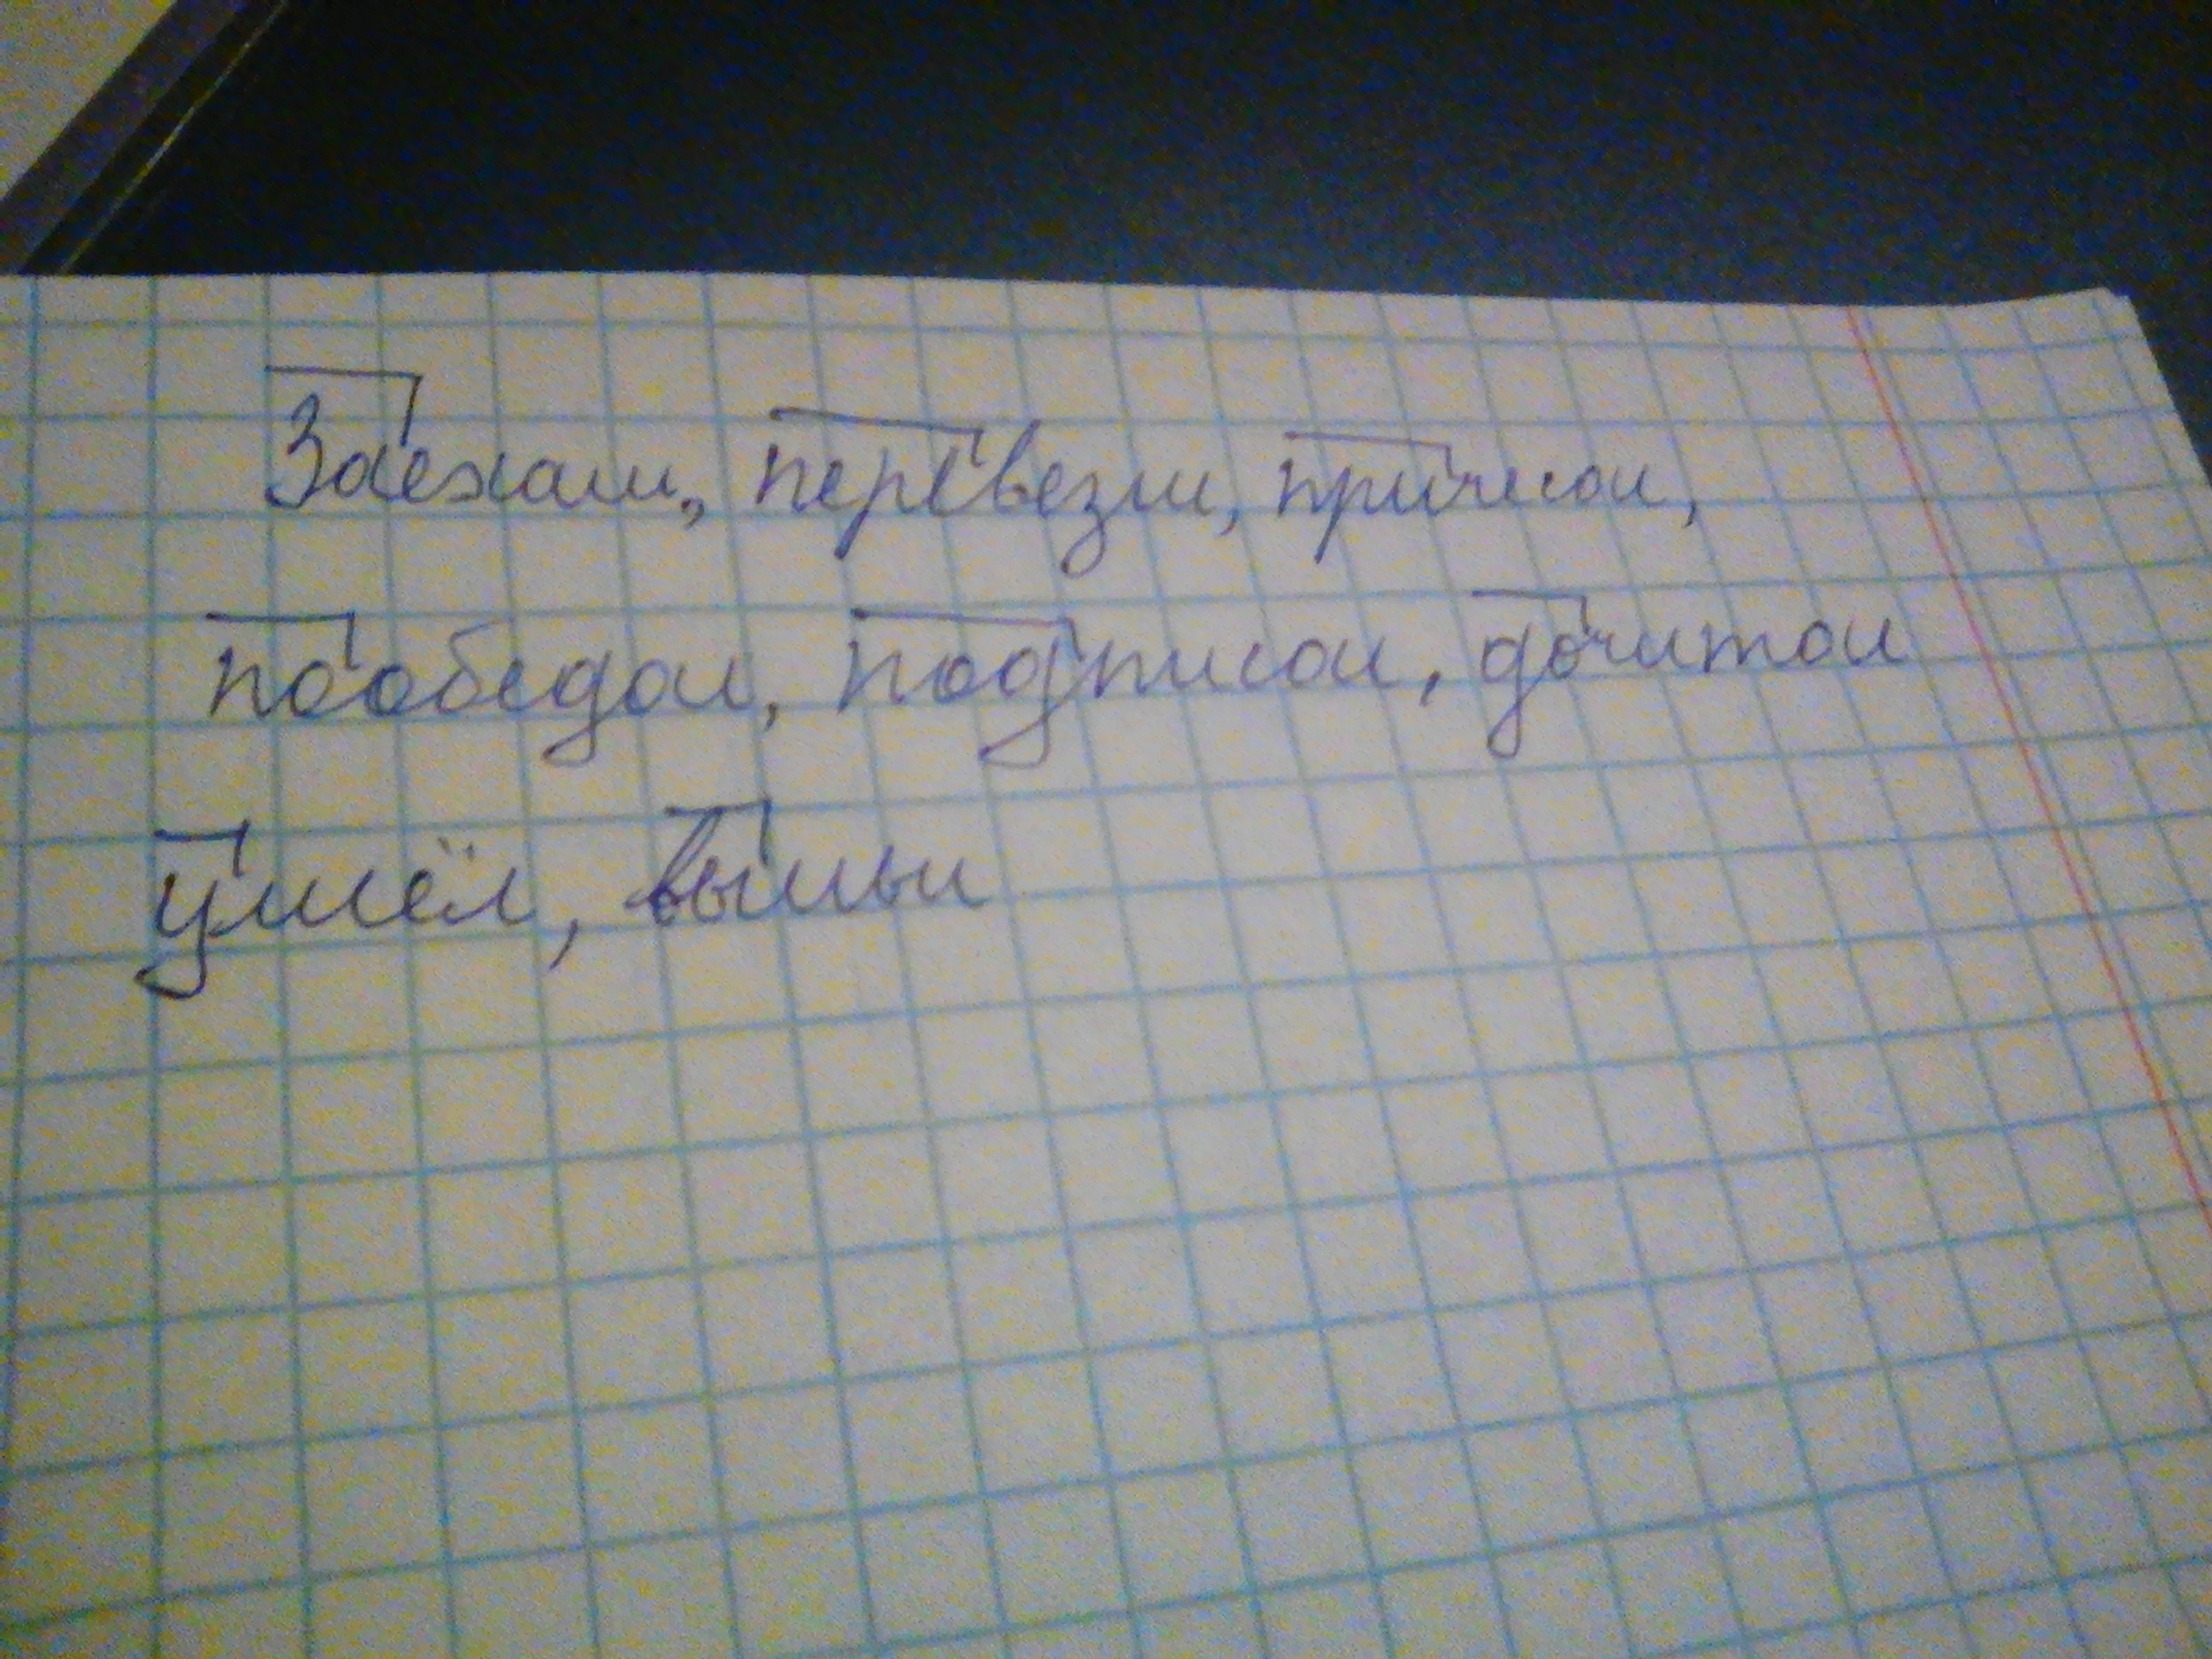 Заехали, перевезли, причесал,
пообедал, подписал, дочитал
ушёл, вышел